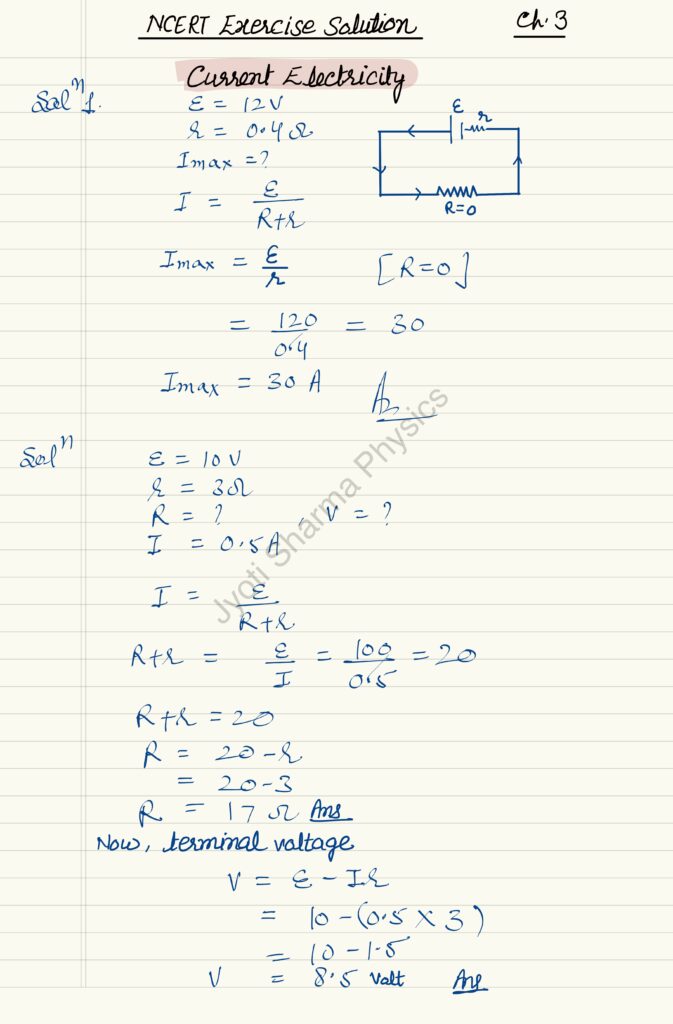 NCERT Exercise Solution Ch. 3
Current Electricity
Solⁿ 1.
ε = 12V
r = 0.4Ω
Imax = ?
I = ε / R+r
ε r
R=0
Imax = ε / r [R=0]
= 120 / 0.4 = 30
Imax = 30 A
Solⁿ
ε = 10V
r = 3Ω
R = ? , V = ?
I = 0.5A
I = ε / R+r
R+r = ε / I = 100 / 0.5 = 20
R+r = 20
R = 20-r
= 20-3
R = 17Ω Ans
Now, terminal voltage
V = ε - Ir
= 10-(0.5 × 3)
= 10-1.5
V = 8.5 Valt Ans
Jyoti Sharma Physics